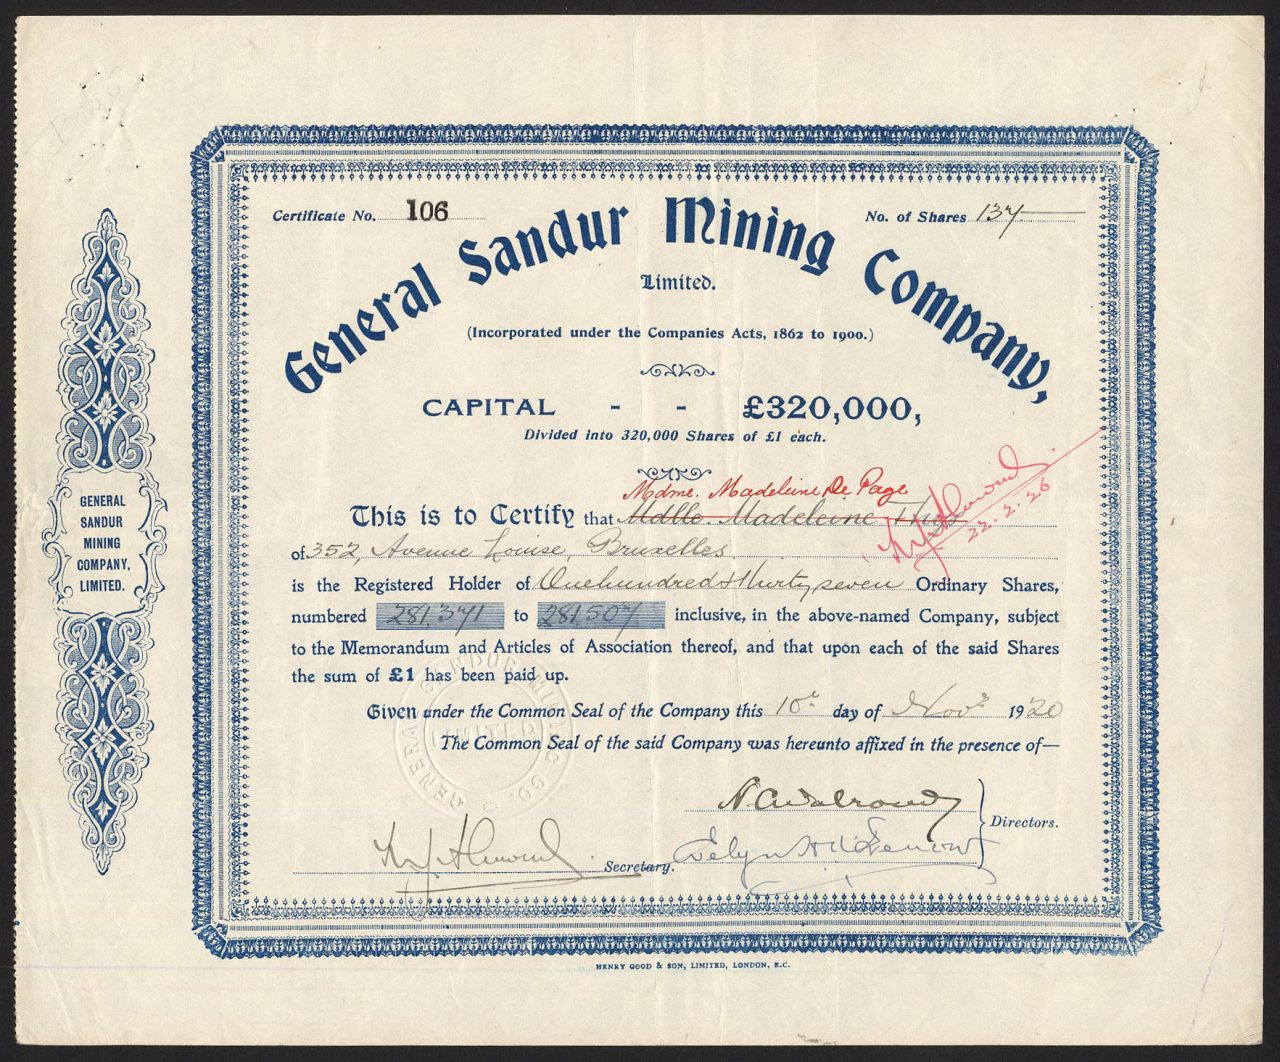 Certificate No. 106
No. of Shares 137
General Sandur Mining Company,
Limited.
(Incorporated under the Companies Acts, 1862 to 1900.)
CAPITAL - - £320,000,
Divided into 320,000 Shares of £1 each.
Mdme. Madeleine De Page
This is to Certify that Mdlle. Madeleine
22.2.26
of 352, Avenue Louise, Bruxelles
is the Registered Holder of One hundred & thirty seven Ordinary Shares,
numbered 281371 to 281507 inclusive, in the above-named Company, subject
to the Memorandum and Articles of Association thereof, and that upon each of the said Shares
the sum of £1 has been paid up.
Given under the Common Seal of the Company this 10th day of Novr 1920
The Common Seal of the said Company was hereunto affixed in the presence of—
Directors.
Secretary.
GENERAL SANDUR MINING CO. LIMITED
HENRY GOOD & SON, LIMITED, LONDON, E.C.
GENERAL
SANDUR
MINING
COMPANY,
LIMITED.